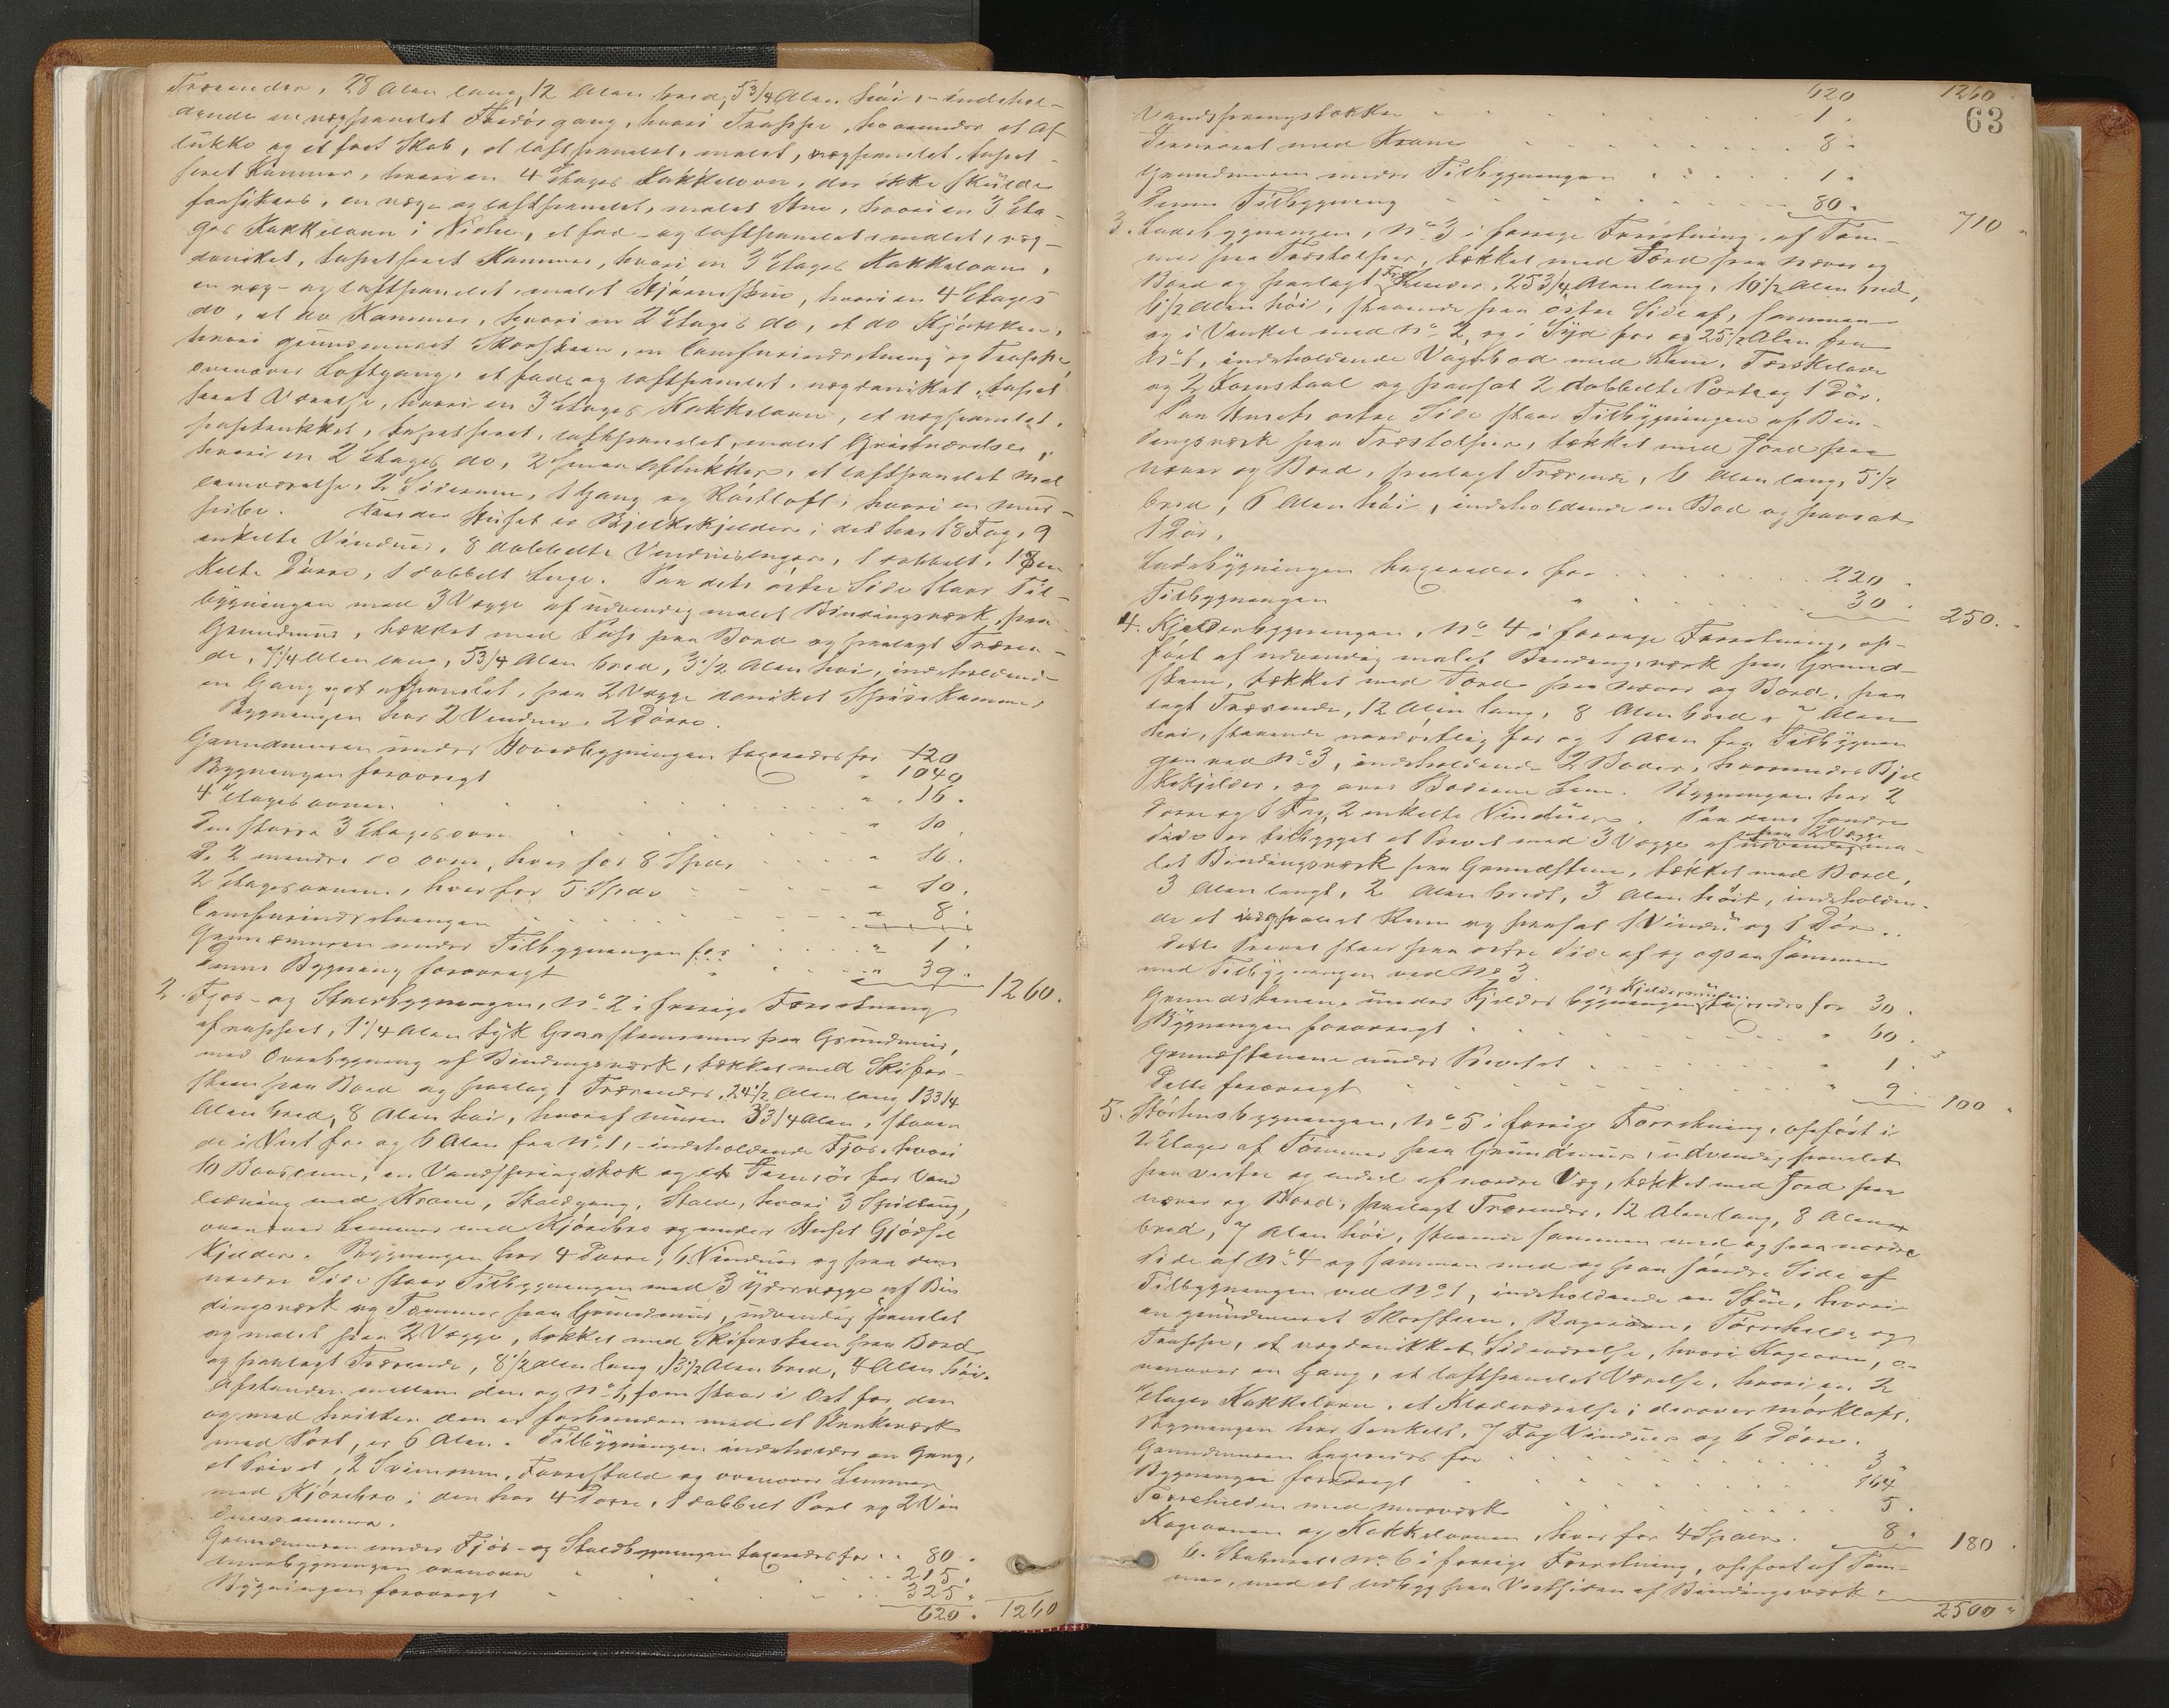 Træender, 28 Alen lang, 12 Alen bred, 5 3/4 Alen høi, - indehol-
dende en vægpanelet Fordørgang, hvori Trappe, hvorunder et Af-
lukke og et fast Skab, et loftpanelet, malet, vægpanelet, tapet-
seret Kammer, hvori en 4 Etages Kakkelovn, der ikke skulde
forsikres, en væg- og loftpanelet, malet Stue, hvori en 3 Eta-
ges Kakkelovn i Niche, et fod- og loftpanelet malet, væg-
donikket, tapetseret Kammer, hvori en 3 Etages Kakkelovn,
en væg- og loftpanelet malet Hjørnestue, hvori en 4 Etages
do, et do Kammer, hvori en 2 Etages do, et do Kjøkken,
hvori grundmuret Skorsteen, en Comfurindretning og Trappe,
ovenover Loftgang, et fod- og loftpanelet, vægdonikket, tapet-
seret Værelse, hvori en 3 Etages Kakkelovn, et vægpanelet,
tapetseret, loftpanelet, malet Gjæsteværelse,
hvori en 2 Etages do, 2 smaa Aflukker, et loftpanelet Mel-
lemværelse, 2 Siderum, 1 Gang og Røstloft, hvori en mur-
pibe. Under Huset er Bjelkekjelder; det har 18 Fag, 9
enkelte Vinduer, 8 dobbelte Vindusluger, 1 dobbelt, 18 en-
kelte Dørre, 1 dobbelt Luge. Paa dets østre Side staar Til-
bygningen med 3 Vægge af udvendig malet Bindingsværk paa
Grundmuur, tækket med Pap paa Bord og paalagt Træen-
de, 7 1/4 Alen lang, 5 3/4 Alen bred, 3 1/2 Alen høi, indeholdende
en Gang og et panelet, paa 2 Vægge donikket Spisekammer.
Bygningen har 2 Vinduer, 2 Dørre.
Grundmuren under Hovedbygningen taxeredes for 120
Bygningen forøvrigt " 1040
4 Etagesovnen " 16.
Den større 3 Etagesovn " 10.
De 2 mindre do ovne, hver for 8 Spdr " 16.
2 Etagesovnene, hver for 5 Spdr " 10.
Comfurindretningen " 8.
Grundmuren under Tilbygningen for " 1.
Denne Bygning forøvrigt " 39. 1260.
2. Fjøs- og Staldbygningen, No 2 i forrige Forretning
af rappet, 1 1/4 Alen tyk Graasteensmuur paa Grundmuur,
med Overbygning af Bindingsværk, tækket med Skifer-
steen paa Bord og paalagt Træender, 24 1/2 Alen lang 13 3/4
Alen bred, 8 Alen høi, hvoraf muren 3 3/4 Alen, staaen-
de i Vest for og 6 Alen fra No 1, - indeholdende Fjøs, hvori
10 Baasrum, en Vandspringstok og et Jernrør for Vand-
ledning med Krane, Staldgang, Stald, hvori 3 Spiltaug,
ovenover Lemmer med Kjørebro og under Huset Gjødsel-
kjelder. Bygningen har 4 Dørre, 6 Vinduer og paa dens
nordre Side staar Tilbygningen med 3 Ydervægge af Bin-
dingsværk og Tømmer paa Grundmuur, udvendig panelet
og malet paa 2 Vægge, tækket med Skifersteen paa Bord
og paalagt Træende, 8 1/2 Alen lang, 13 1/2 Alen bred, 4 Alen høi.
Afstanden mellem den og No 1, som staar i Ost for den
og med hvilken den er forbunden med et Plankeværk
med Port, er 6 Alen. Tilbygningen indeholder en Gang,
et Privet, 2 Sviinerum, Faarestald og ovenover Lemmer
med Kjørebro; den har 4 Dørre, 1 dobbelt Port og 2 Vin-
duesrammer.
Grundmuren under Fjøs- og Staldbygningen taxeredes for 80.
Murbygningen ovenover " 215.
Bygningen forøvrigt " 325.
620. 1260
620 1260
63
Vandspringstokken 1.
Jernrøret med Krane 8.
Grundmuren under Tilbygningen 1.
Denne Tilbygning 80. 710
3. Ladebygningen, No 3 i forrige Forretning, af Tøm-
mer paa Træstolper, tækket med Jord paa Næver og
Bord og paalagt Træender, 25 3/4 Alen lang, 10 1/2 Alen bred,
6 1/2 Alen høi, staaende paa østre Side af, sammen
og i Vinkel med No 2, og i Syd for og 25 1/2 Alen fra
No 1, indeholdende Vognbod med Lem, Tærskelade
og 2 Kornstaal og paasat 2 dobbelte Porte og 1 Dør.
Paa Husets østre Side staar Tilbygningen af Bin-
dingsværk paa Træstolper, tækket med Jord paa
Næver og Bord, paalagt Træende, 6 Alen lang, 5 1/2
bred, 6 Alen høi, indeholdende en Bod og paasat
1 Dør.
Ladebygningen taxeredes for 220
Tilbygningen " 30. 250.
4. Kjelderbygningen, No 4 i forrige Forretning, op-
ført af udvendig malet Bindingsværk paa Grund-
steene, tækket med Jord paa Næver og Bord, paa-
lagt Træender, 12 Alen lang, 8 Alen bred, 7 Alen
høi, staaende nordøstlig for og 1 Alen fra Tilbygnin-
gen ved No 3, indeholdende 2 Boder, hvorunder Bjel-
kekjelder, og over Boderne Lem. Bygningen har 2
Dørre og 1 Fag, 2 enkelte Vinduer. Paa dens søndre
Side er tilbygget et Privet med 3 Vægge af paa 2 Vægge udvendig ma-
let Bindingsværk paa Grundsteene, tækket med Bord,
3 Alen langt, 2 Alen bredt, 3 Alen høit, indeholden-
de et vægpanelet Rum og paasat 1 Vindu og 1 Dør.
Dette Privet staar paa østre Side af og ogsaa sammen
med Tilbygningen ved No 3.
Grundstenene under Kjelderbygningen og Kjeldermuren taxeredes for 30.
Bygningen forøvrigt " 60.
Grundstenene under Privetet " 1.
Dette forøvrigt " 9. 100
5. Størhuusbygningen, No 5 i forrige Forretning, opført i
2 Etager af Tømmer paa Grundmuur, udvendig panelet
paa vestre og endeel af nordre Væg, tækket med Jord paa
Næver og Bord, paalagt Træender, 12 Alen lang, 8 Alen
bred, 7 Alen høi, staaende sammen med og paa nordre
Side af No 4 og sammen med og paa søndre Side af
Tilbygningen ved No 1, indeholdende en Stue, hvori
en grundmuret Skorsteen, Bagerovn, Tørrehelde og
Trappe, et vægdonikket Sideværelse, hvori Kageovn, o-
venover en Gang, et loftpanelet Værelse, hvori en 2
Etages Kakkelovn, et Klædeværelse; derover mørkloft.
Bygningen har enkelt, 7 Fag Vinduer og 6 Dørre.
Grundmuren taxeredes for 3
Bygningen forøvrigt 164
Tørrehelden med murværk 5.
Kageovnen og Kakkelovnen, hver for 4 Spdlr. 8. 180
6. Stabburet No 6 i forrige Forretning, opført af Tøm-
mer, med et Udbygg paa Vestsiden af Bindingsværk,
2500